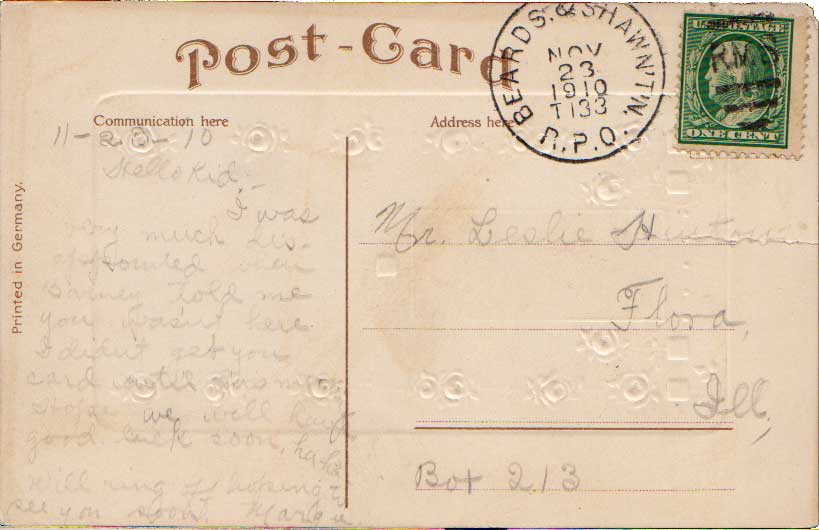 Post-Card
BEARDS. & SHAWN'T'N.
NOV
23
1910
T133
R.P.O.
R.M.S
U.S. POSTAGE
ONE CENT
Communication here
Address here
Printed in Germany.
11-23-10
Hello Kid,
I was
very much dis-
appointed when
Barney told me
you wasn't here
I didn't get you
card until
we will have
good luck soon, ha ha
Will ring off hoping to
see you soon.
Mr. Leslie
Flora,
Ill,
Box 213